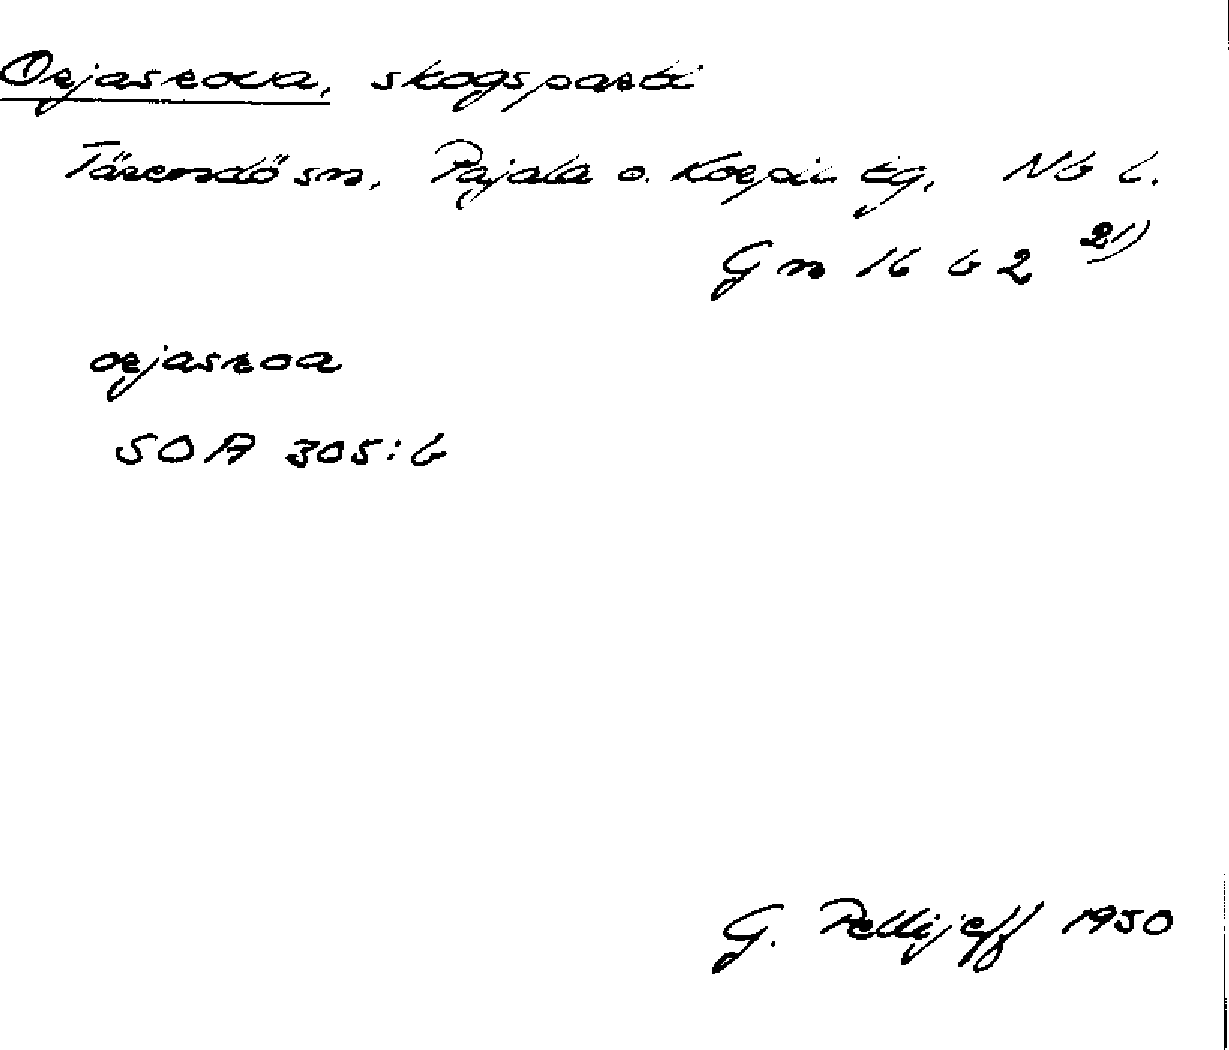 Orjasrova, skogsparti
Tärendö sn, Pajala o. Korpil. tg, Nb l.
Gn 16 b 2 21)
orjasroa
SOA 305:6
G. Pellijeff 1950